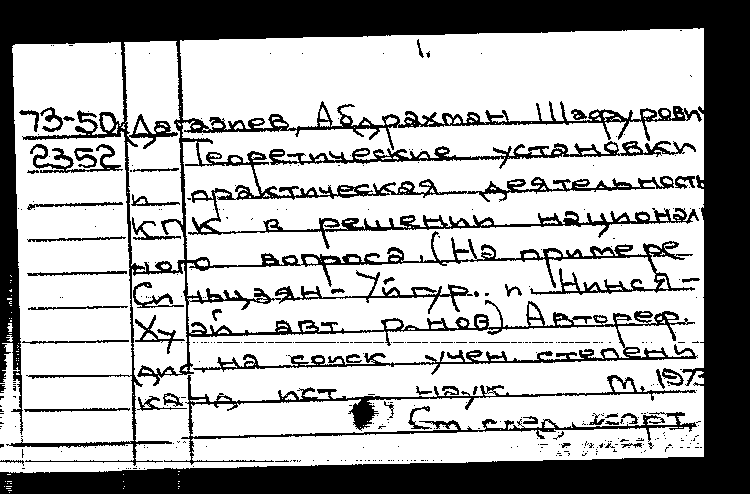 1.
73-50к Дагазиев, Абдрахман Шафурович
2352 Теоретические установки
и практическая деятельность
КПК в решении национал
ного вопроса. (На примере
Синьцзян-Уйгур. и Нинся-
Хуэй. авт. р-нов) Автореф.
дис. на соиск. учен. степени
канд. ист. наук. М., 1973
См. след. карт.